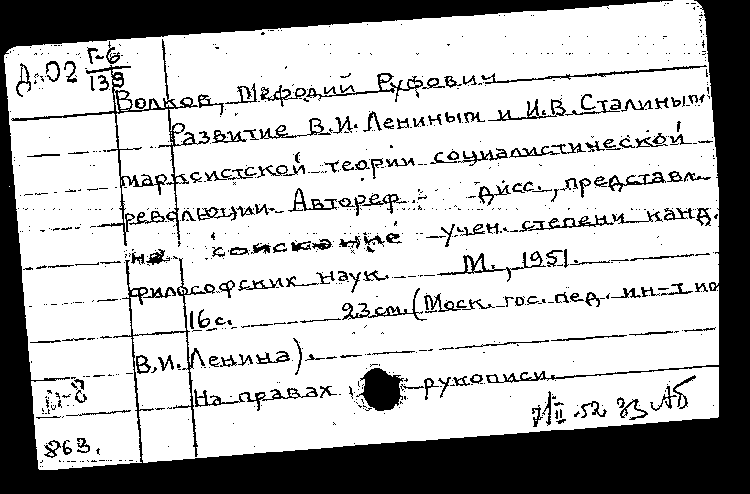 Д02 Г-6
139
Волков, Мефодий Руфович
Развитие В.И.Лениным и И.В.Сталиным
марксистской теории социалистической
революции. Автореф. дисс., представл.
на соискание учен. степени канд.
философских наук. М., 1951.
16с. 23см. (Моск. гос. пед. ин-т им
В.И. Ленина).
На правах рукописи.
-8
863.
7/II.52.